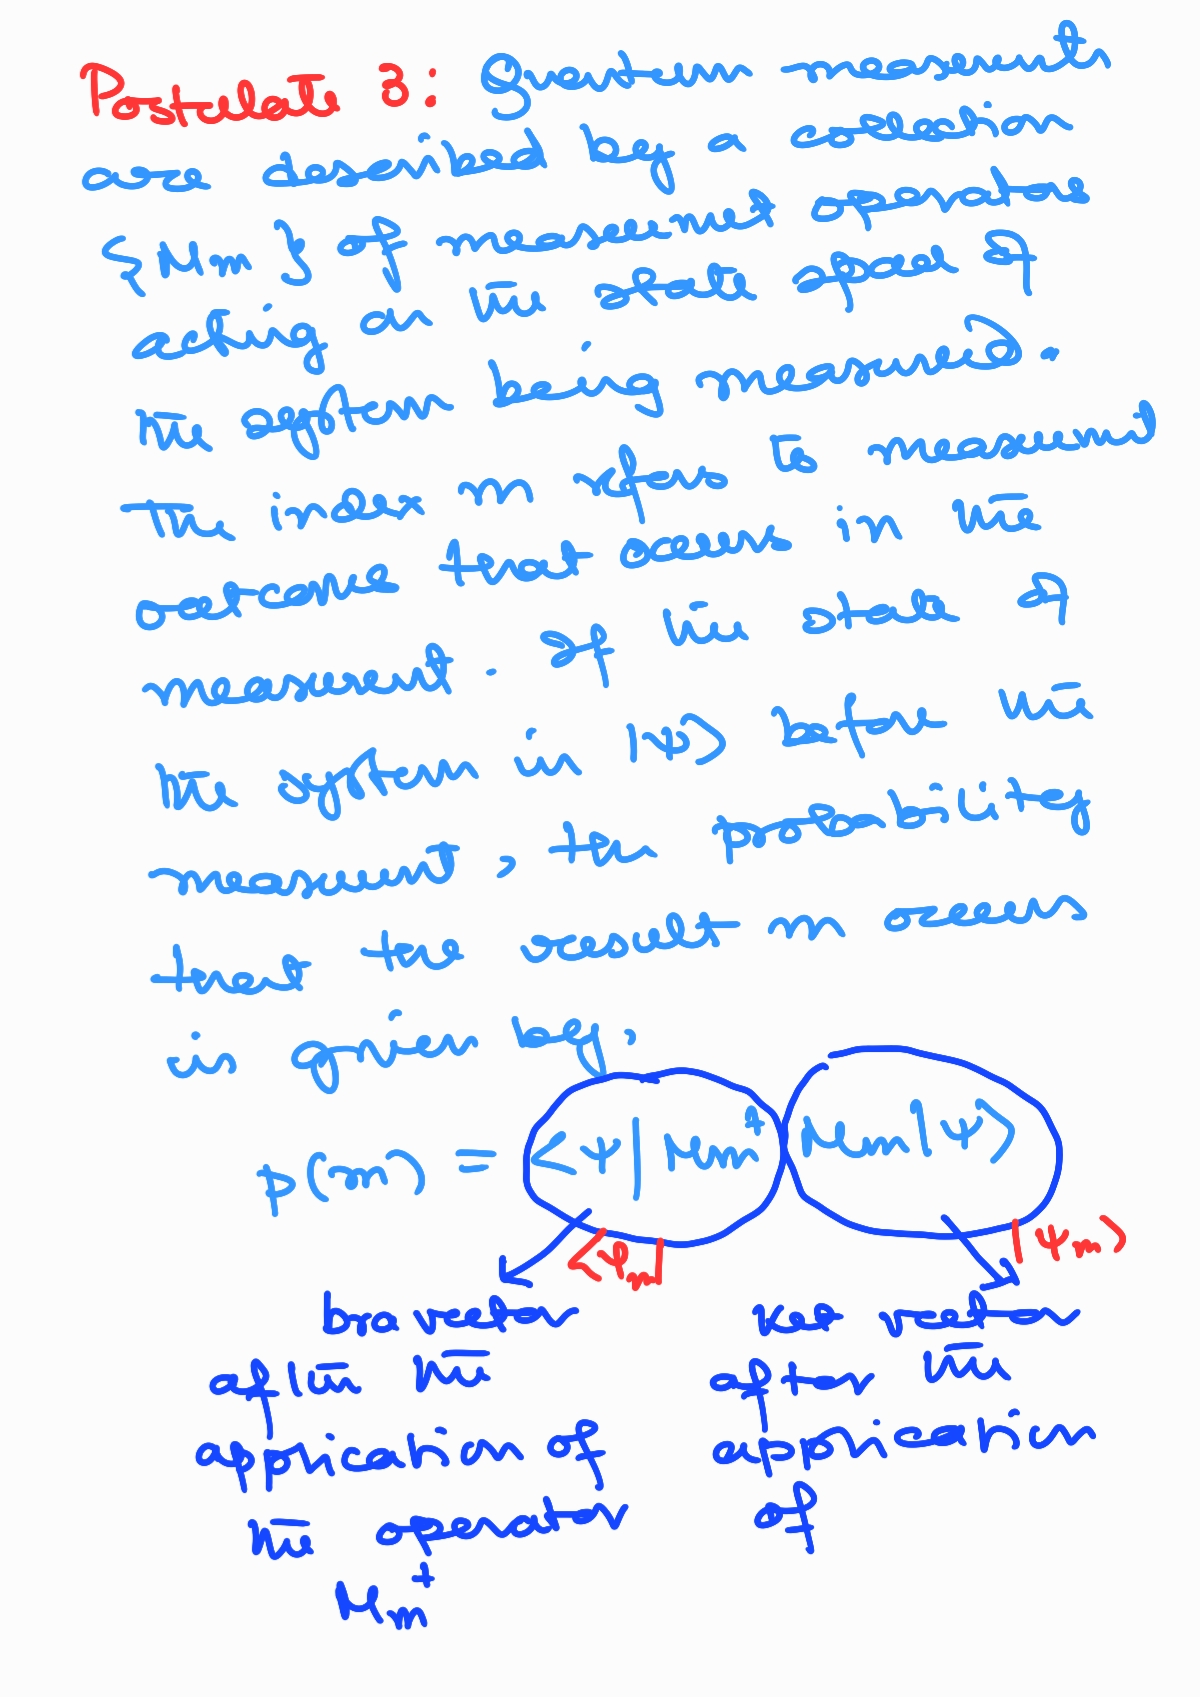 Postulate 3: Quantum measurements
are described by a collection
{Mm} of measurement operators
acting on the state space of
the system being measured.
The index m refers to measurement
outcome that occurs in the
measurement. If the state of
the system in |ψ⟩ before the
measurement, then probability
that the result m occurs
is given by,
p(m) = ⟨ψ| Mm† Mm |ψ⟩
⟨ψm| |ψm⟩
bra vector ket vector
after the after the
application of application
the operator of
Mm†